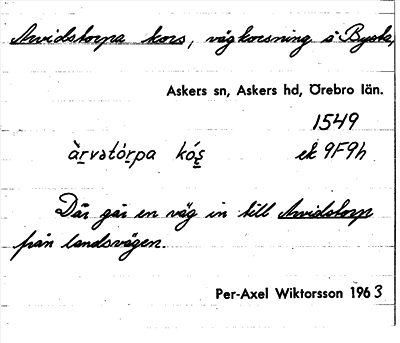 Arvidstorpa kors, vägkorsning å Bysta,
Askers sn, Askers hd, Örebro län.
1549
àr̠vətór̠pa kó̜s̠ ek 9F9h
Där går en väg in till Arvidstorp
från landsvägen.
Per-Axel Wiktorsson 1963